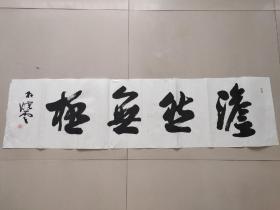 澹然無極